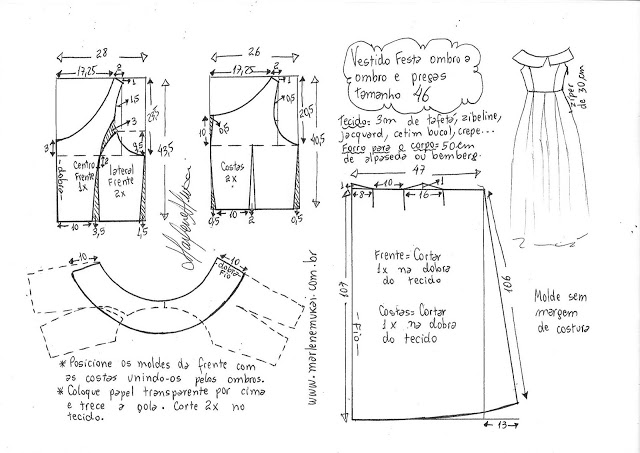 28
17,25
2
1
1,5
3
3
9,5
2
25,5
43,5
-dobra-
Centro
Frente
1x
lateral
Frente
2x
10
3,5
1,5
26
17,25
2
1
0,5
10
0,5
20,5
40,5
Costas
2x
0,5
10
2
0,5
Marlene Mukai
Vestido Festa ombro a
ombro e pregas
tamanho 46
Tecido: 3m de tafetá, zibeline,
jacquard, cetim bucol, crepe...
Forro para o corpo: 50cm
de alpaseda ou bemberg.
zíper
de 30cm
47
1
10
1
8
16
107
106
-Fio-
Frente= Cortar
1x na dobra
do tecido
Costas= Cortar
1x na dobra
do tecido
13
Molde sem
margem
de costura
10
10
dobra
Fio
www.marlenemukai.com.br
* Posicione os moldes da frente com
as costas unindo-os pelos ombros.
* Coloque papel transparente por cima
e trece a gola. Corte 2x no
tecido.